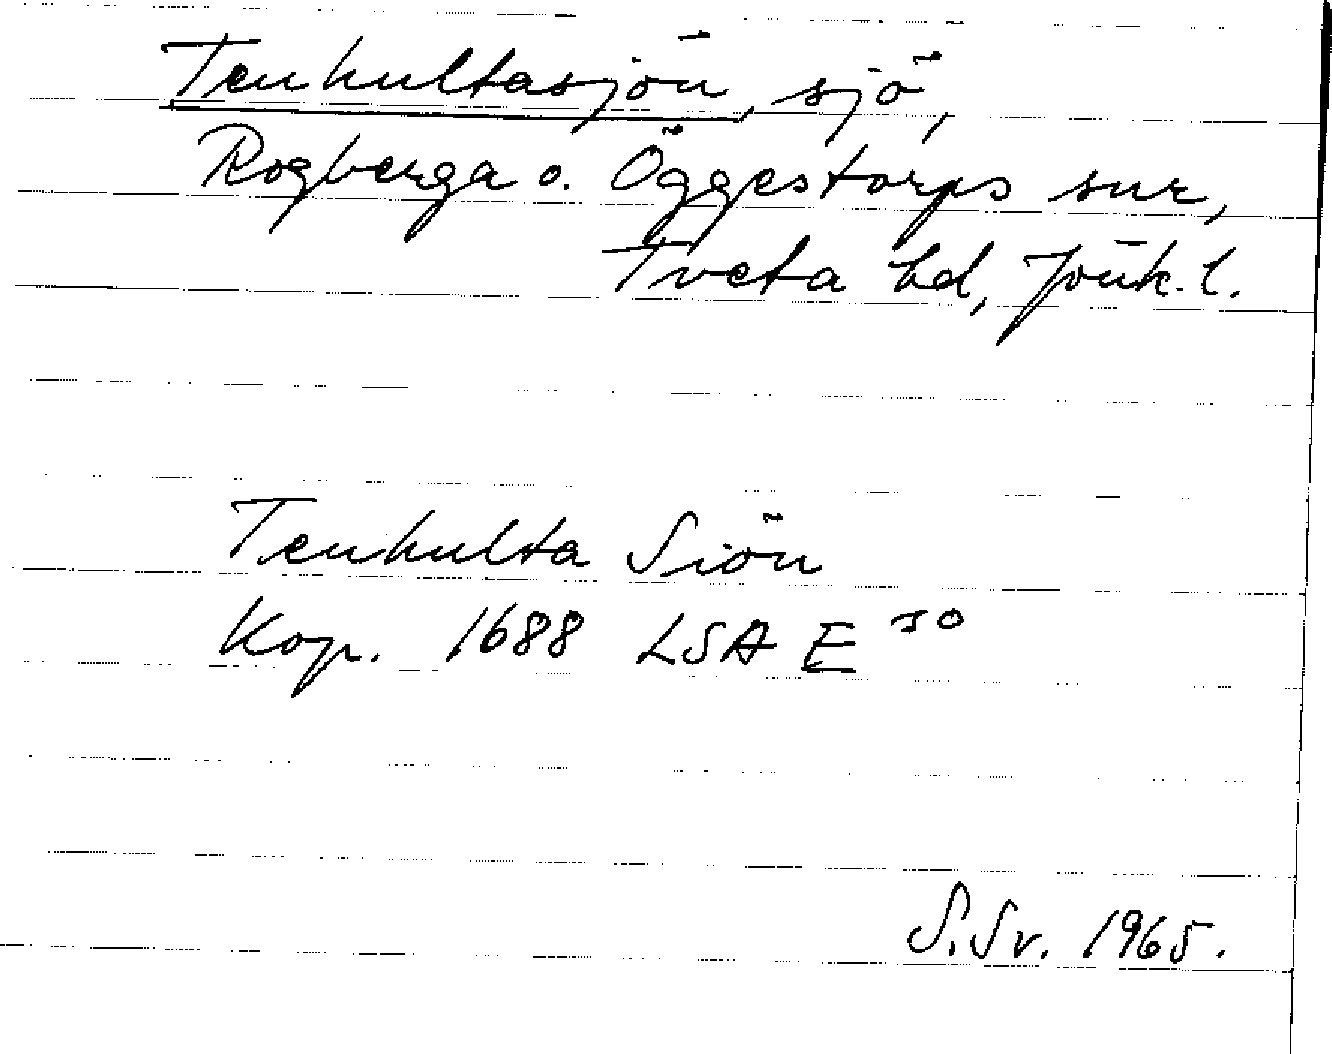 Tenhultasjön, sjö,
Rogberga o. Öggestorps snr,
Tveta hd, Jönk. l.
Tenhulta Siön
Kop. 1688 LSA E 30
S.Sv. 1965.